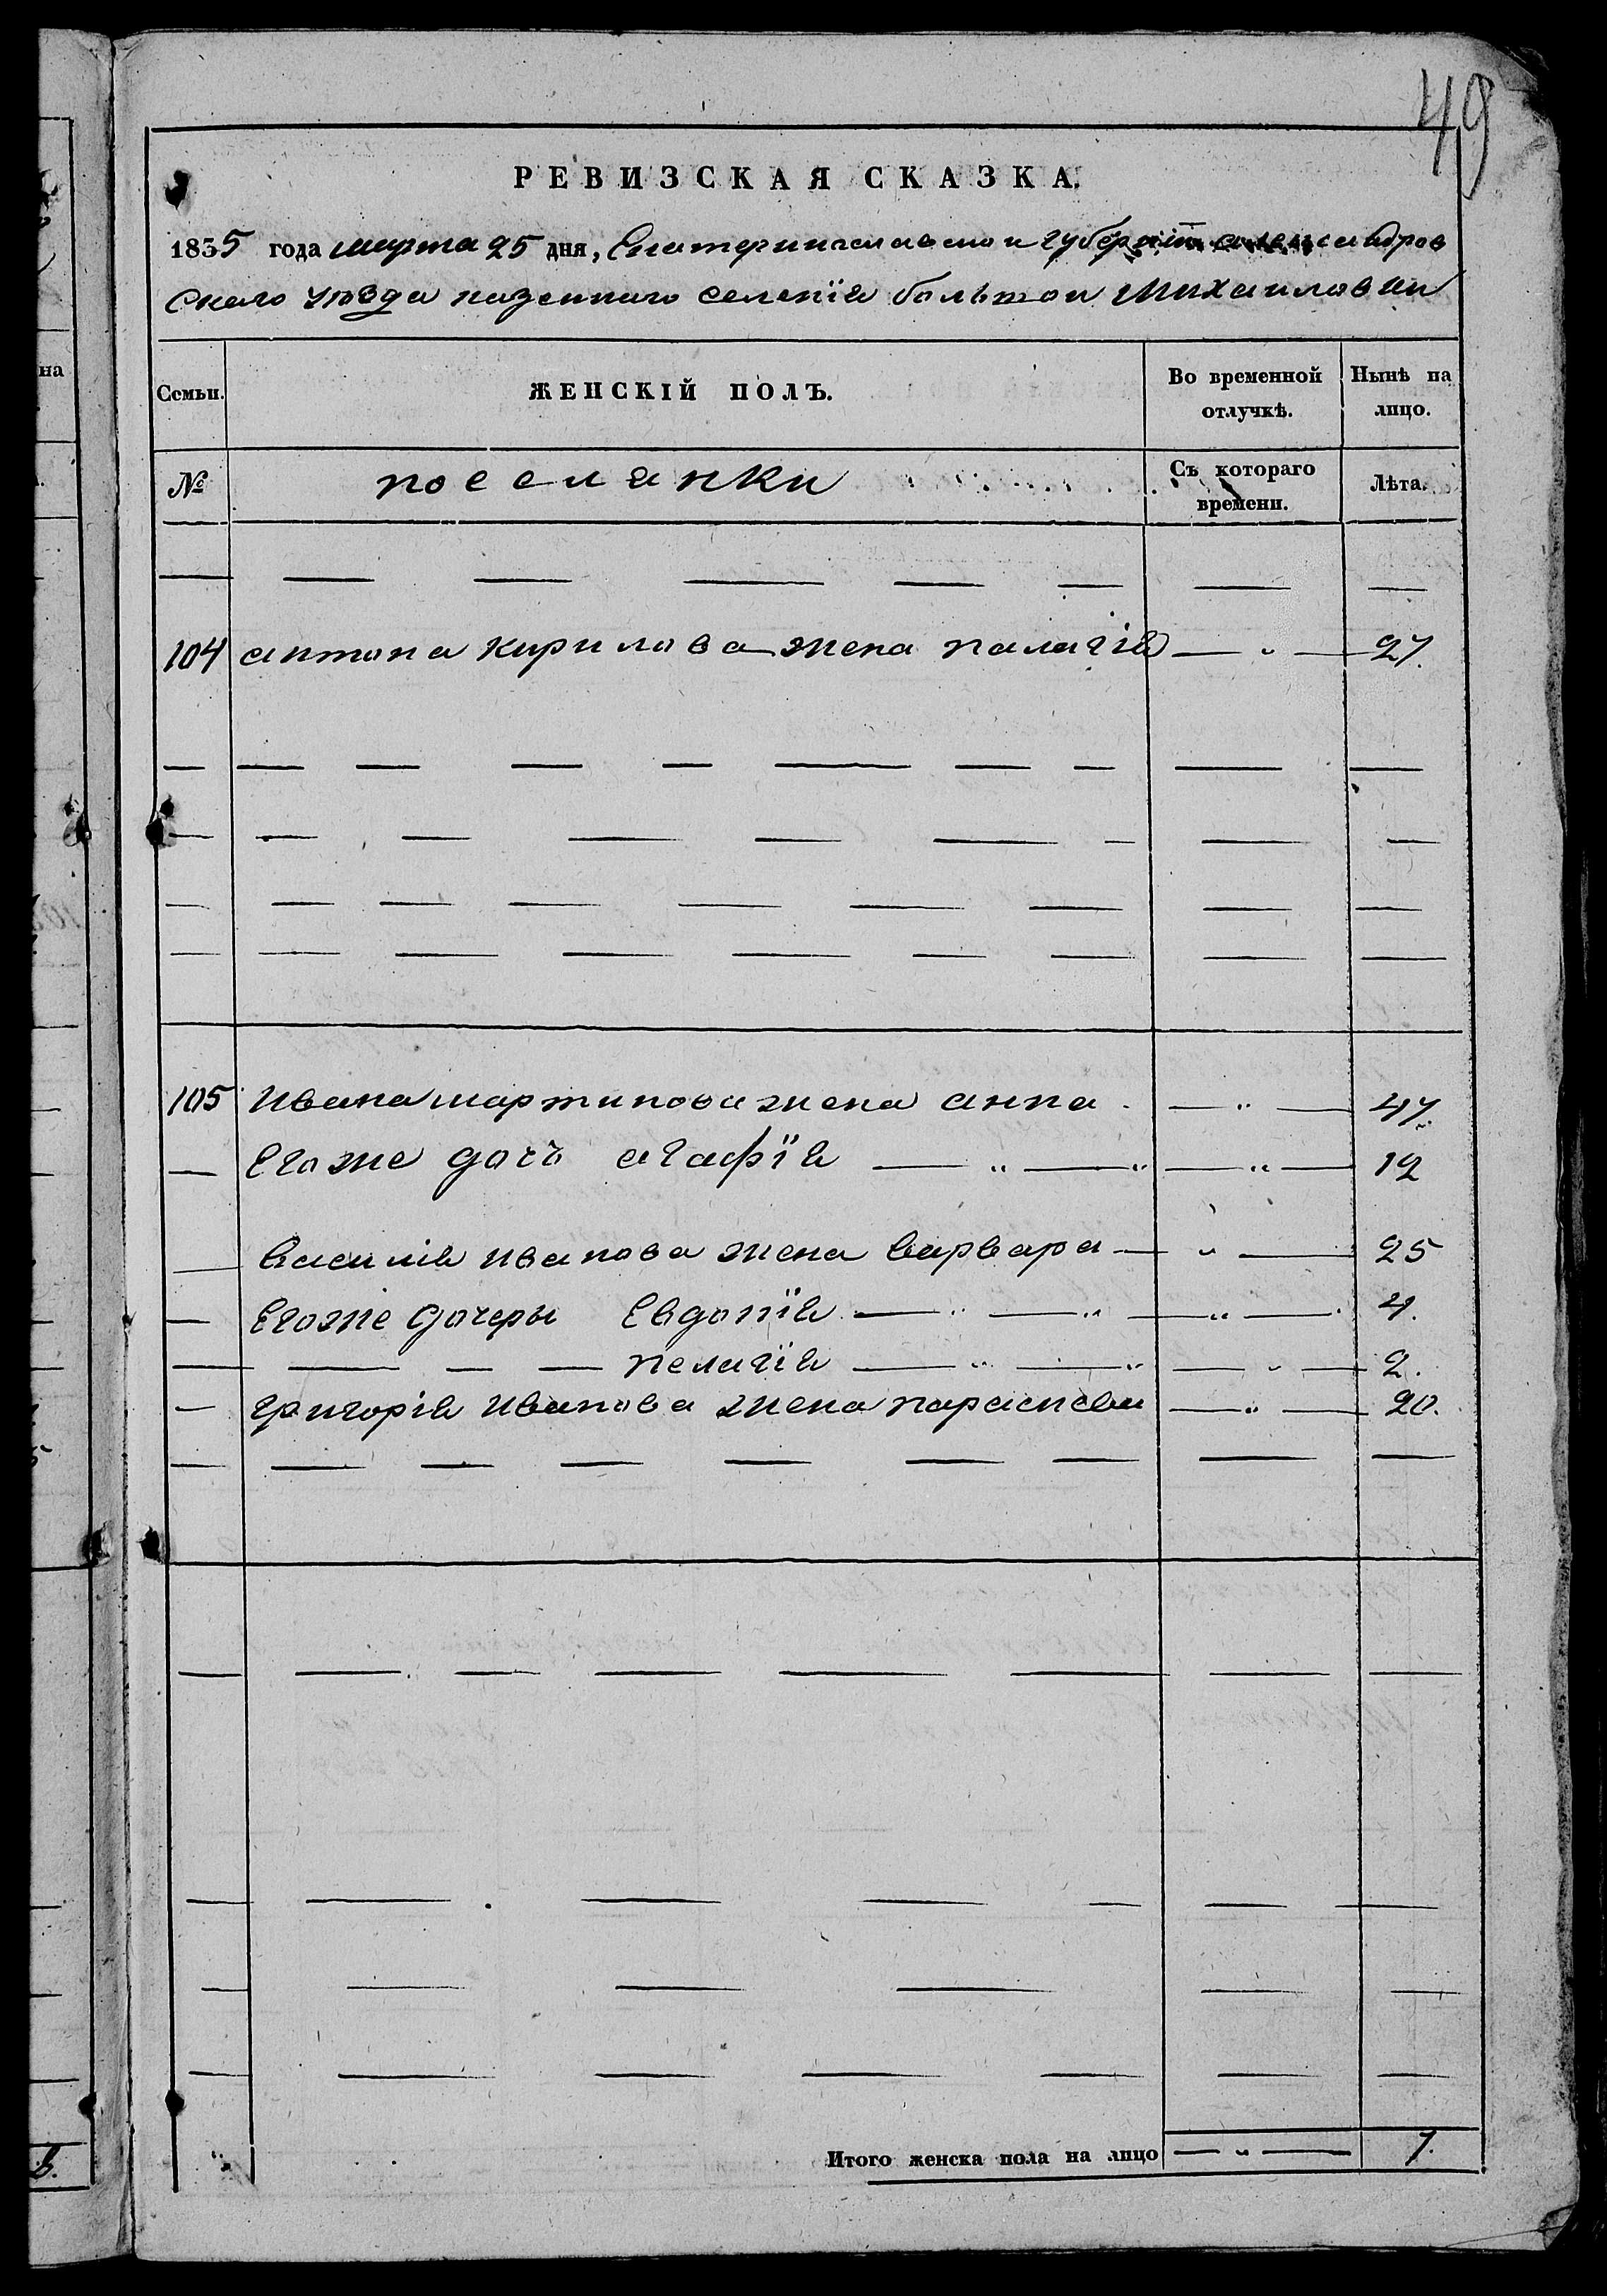 49
РЕВИЗСКАЯ СКАЗКА.
1835 года марта 25 дня, Екатеринославской губерніи александров
скаго уезда казеннаго селенія большой Михайловки
Семьи. ЖЕНСКІЙ ПОЛЪ. Во временной отлучкѣ. Нынѣ на лицо.
№ поселянки Съ котораго времени. Лѣта.
104 антона кирилова жена палагія — " — 27.
105 ивана мартинова жена анна — " — 47.
— Егоже дочъ агафія — " — " — " — 12
— василія иванова жена варвара — " — 25
— Егоже дочеры Евдокія — " — " — " — 4.
— — — — пелагія — " — " — " — 2.
— григорія иванова жена параскева — " — 20.
Итого женска пола на лицо — " — 7.